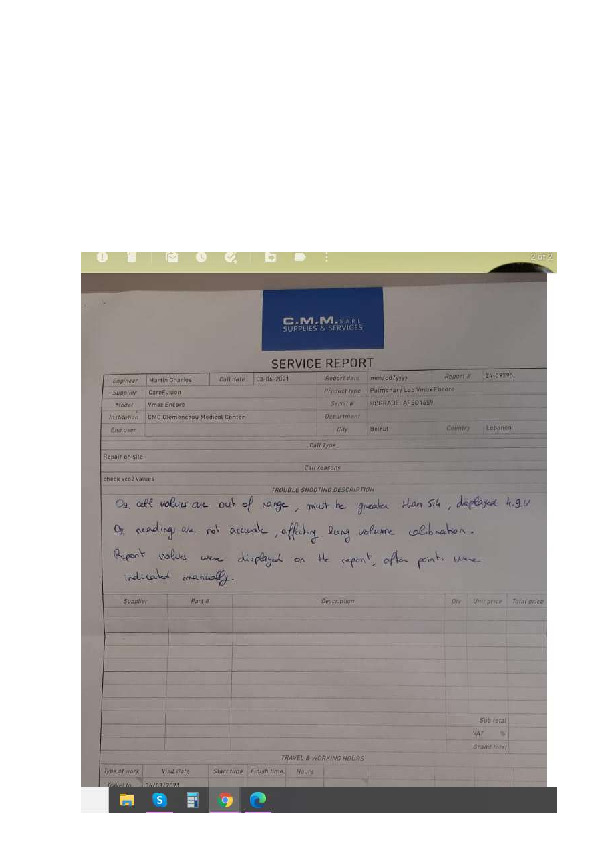 2 of 2
C.M.M. SARL
SUPPLIES & SERVICES
SERVICE REPORT
Engineer Martin Charles Call date Report date Report #
Supplier CareFusion Product type Pulmonary Lab Vmax Encore
Model Vmax Encore Serial #
Institution CMC Clemenceau Medical Center Department
End user City Beirut Country Lebanon
Call type
Repair on site
Call reasons
check vco2 values
TROUBLE SHOOTING DESCRIPTION
O2 cell values are out of range, must be greater than 5.4, displayed 4.9 V
O2 reading are not accurate, affecting lung volume calibration.
Report values were displayed on the report, after points were
indicated manually.
Supplier Part # Description Qty Unit price Total price
Sub total
VAT %
Grand total
TRAVEL & WORKING HOURS
Type of work Visit date Start time Finish time Hours